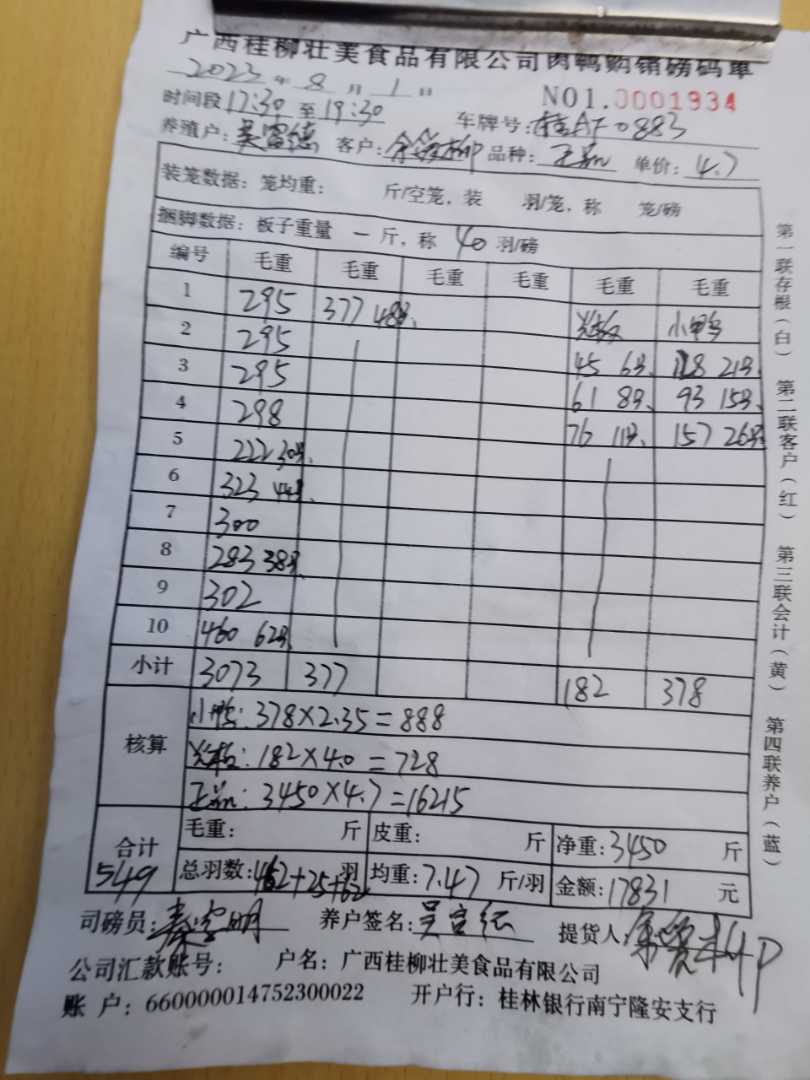 广西桂柳壮美食品有限公司肉鸭购销磅码单
2023年8月1日 NO1.0001934
时间段17:30至19:30 车牌号:桂AF0883
养殖户:吴富德 客户: 品种:正品 单价:4.7
装笼数据:笼均重: 斤/空笼,装 羽/笼,称 笼/磅
捆脚数据:板子重量 一斤,称 40 羽/磅
编号 毛重 毛重 毛重 毛重 毛重 毛重
1 295 377 48只、 小鸭
2 295 45 6只、 128 21只、
3 295 61 8只、 93 15只、
4 298 76 11只、 157 26只
5 222 30只、
6 323 44只、
7 300
8 283 38只、
9 302
10 460 62只
小计 3073 377 182 378
核算
小鸭:378×2.35=888
182×4.0=728
正品:3450×4.7=16215
合计 549
毛重: 斤 皮重: 斤 净重:3450 斤
总羽数:462+25+62 羽 均重:7.47 斤/羽 金额:17831 元
司磅员: 养户签名: 提货人:
公司汇款账号: 户名:广西桂柳壮美食品有限公司
账 户:660000014752300022 开户行:桂林银行南宁隆安支行
第一联存根(白) 第二联客户(红) 第三联会计(黄) 第四联养户(蓝)